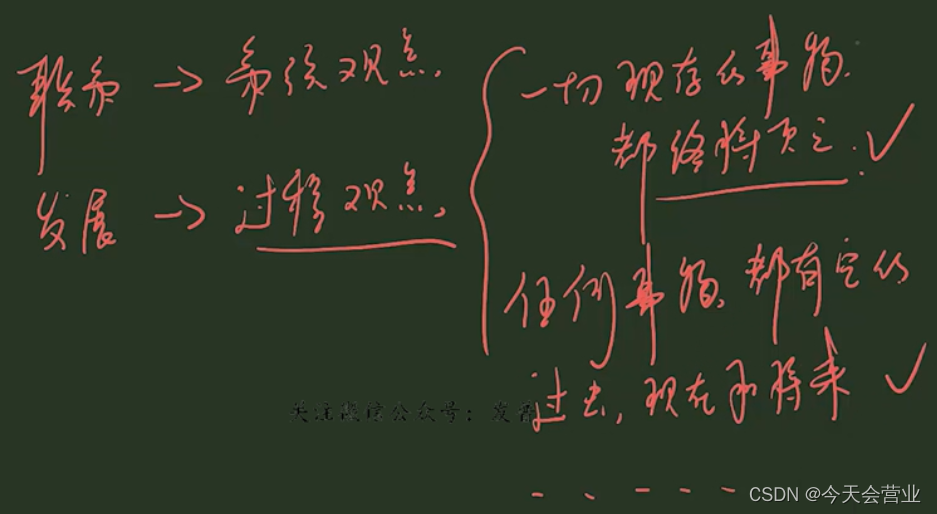 联系 → 系统观点
一切现存的事物
都终将灭亡. ✓
发展 → 过程观点
任何事物都有它的
过去, 现在和将来 ✓
公众号:
CSDN @今天会营业